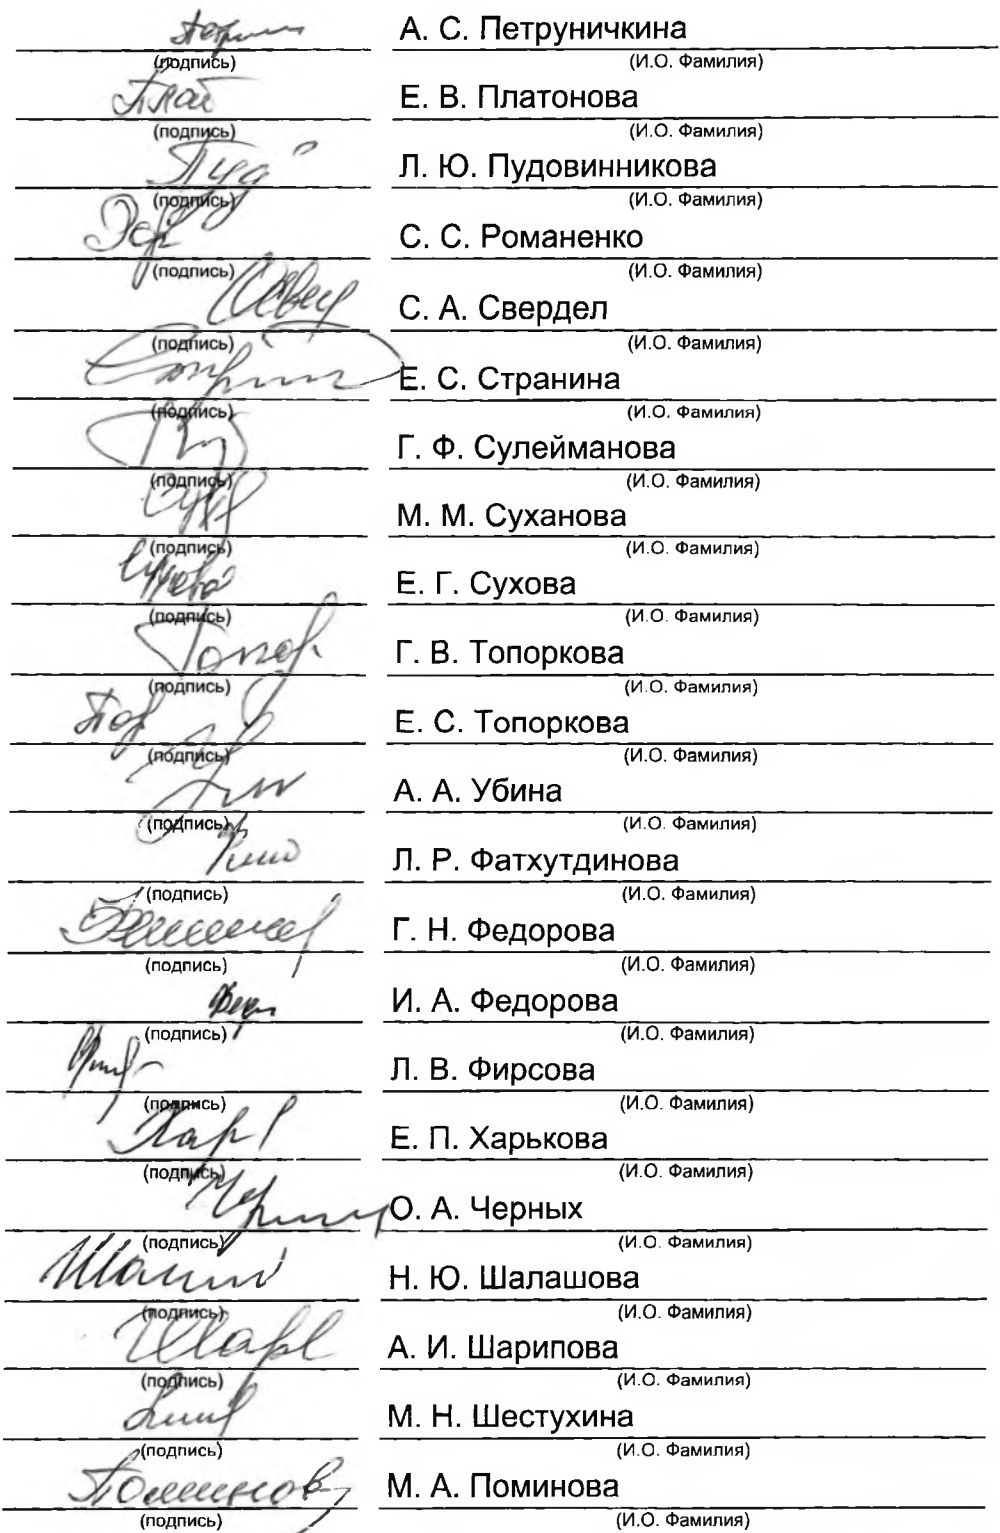 А. С. Петруничкина
(подпись) (И.О. Фамилия)
Е. В. Платонова
(подпись) (И.О. Фамилия)
Л. Ю. Пудовинникова
(подпись) (И.О. Фамилия)
С. С. Романенко
(подпись) (И.О. Фамилия)
С. А. Свердел
(подпись) (И.О. Фамилия)
Е. С. Странина
(подпись) (И.О. Фамилия)
Г. Ф. Сулейманова
(подпись) (И.О. Фамилия)
М. М. Суханова
(подпись) (И.О. Фамилия)
Е. Г. Сухова
(подпись) (И.О. Фамилия)
Г. В. Топоркова
(подпись) (И.О. Фамилия)
Е. С. Топоркова
(подпись) (И.О. Фамилия)
А. А. Убина
(подпись) (И.О. Фамилия)
Л. Р. Фатхутдинова
(подпись) (И.О. Фамилия)
Г. Н. Федорова
(подпись) (И.О. Фамилия)
И. А. Федорова
(подпись) (И.О. Фамилия)
Л. В. Фирсова
(подпись) (И.О. Фамилия)
Е. П. Харькова
(подпись) (И.О. Фамилия)
О. А. Черных
(подпись) (И.О. Фамилия)
Н. Ю. Шалашова
(подпись) (И.О. Фамилия)
А. И. Шарипова
(подпись) (И.О. Фамилия)
М. Н. Шестухина
(подпись) (И.О. Фамилия)
М. А. Поминова
(подпись) (И.О. Фамилия)